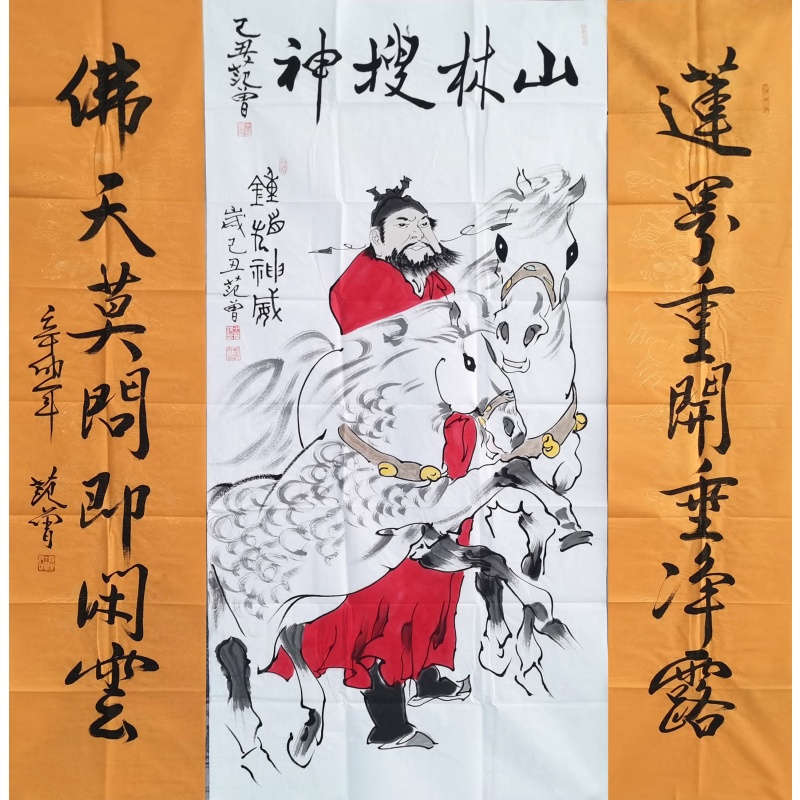 山林搜神
己丑范曾
蓮萼重開垂净露
佛天莫問即閑雲
辛卯年 范曾
鍾馗神威
歲己丑范曾